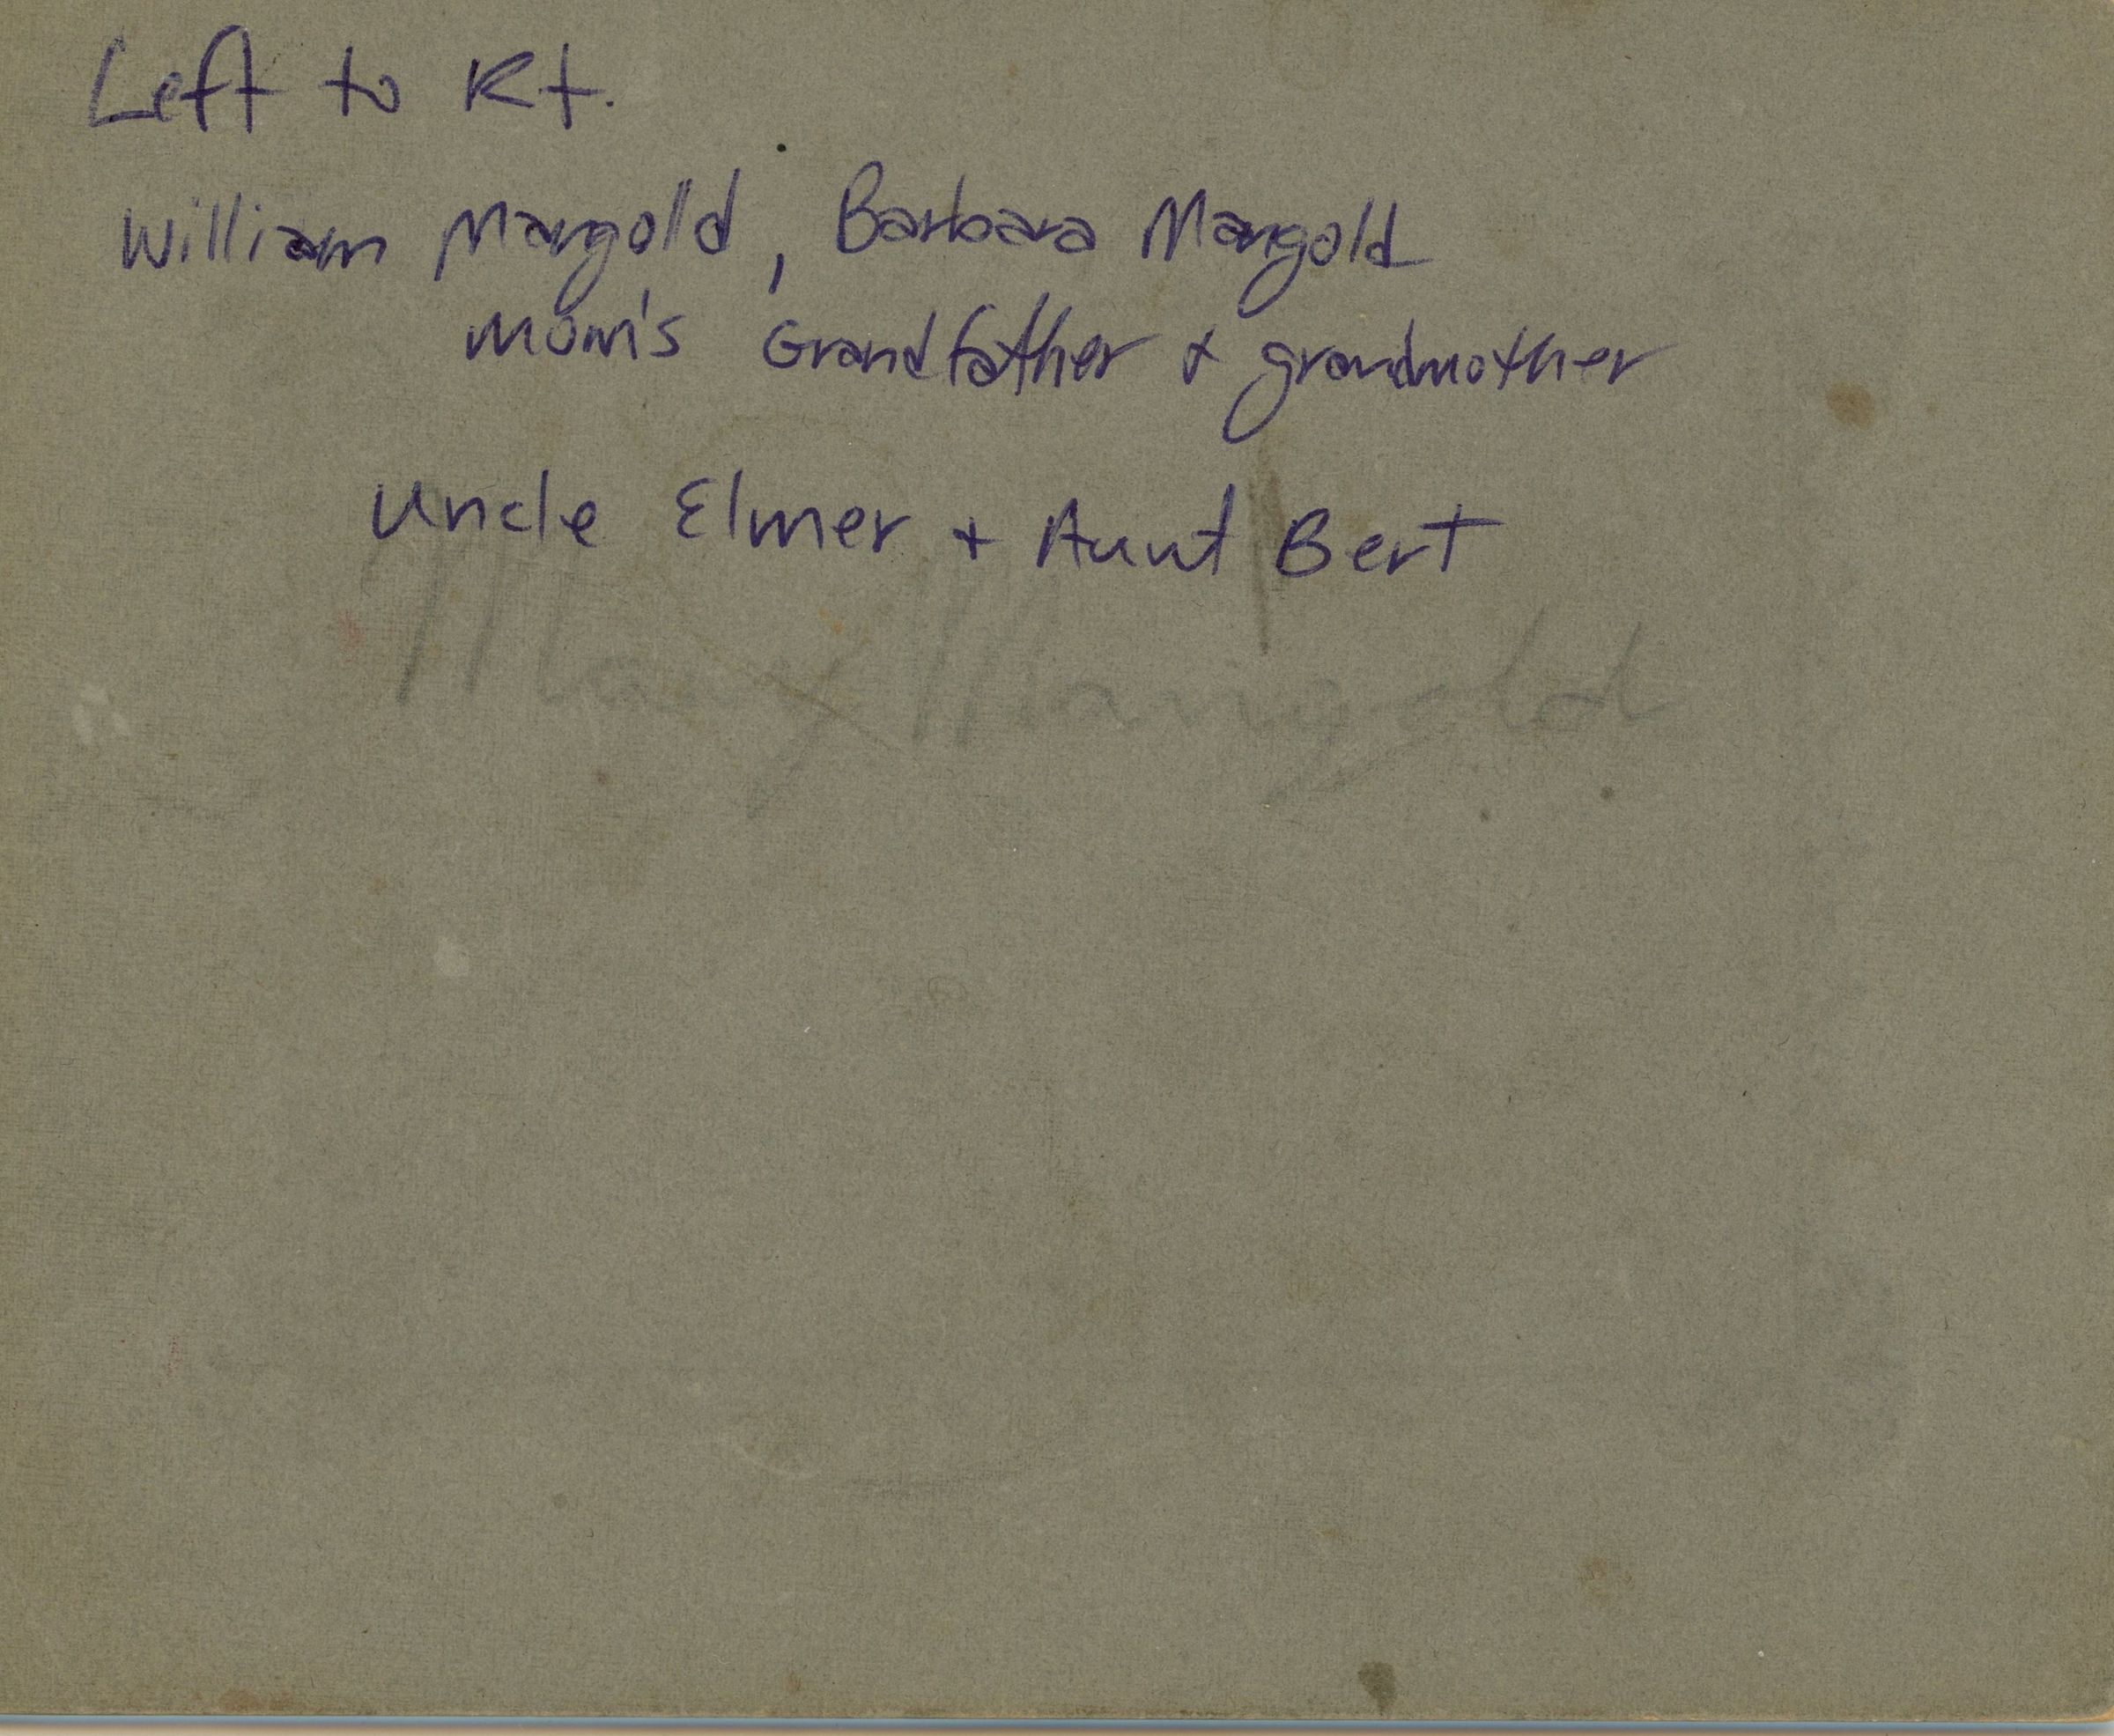 Left to Rt.
William Mangold, Barbara Mangold
Mom's Grandfather & grandmother
Uncle Elmer + Aunt Bert
Mary Mangold